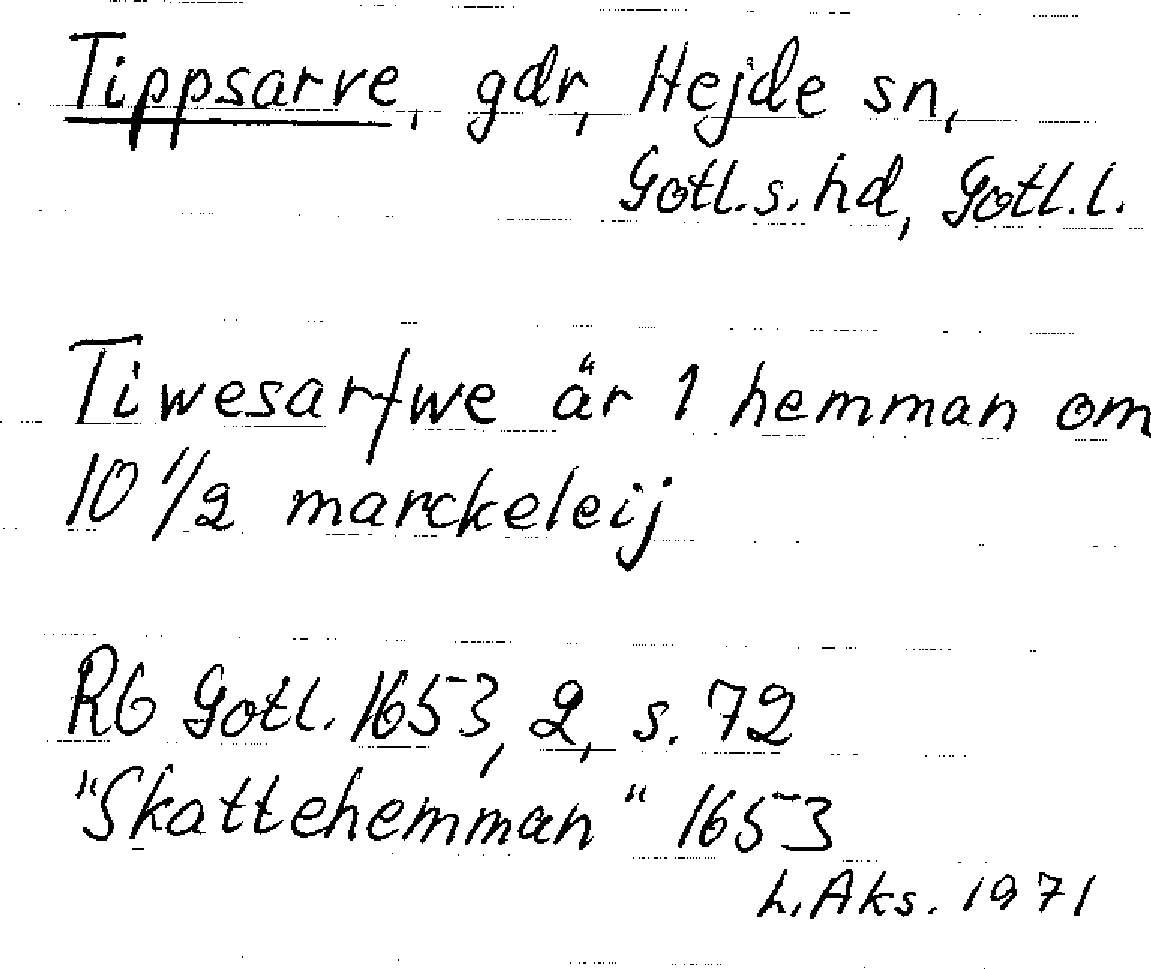 Tippsarve, gdr, Hejde sn,
Gotl.s.hd, Gotl.l.
Tiwesarfwe är 1 hemman om
10 1/2 marckeleij
Rb Gotl. 1653, 2, s. 72
"Skattehemman" 1653
L. Aks. 1971